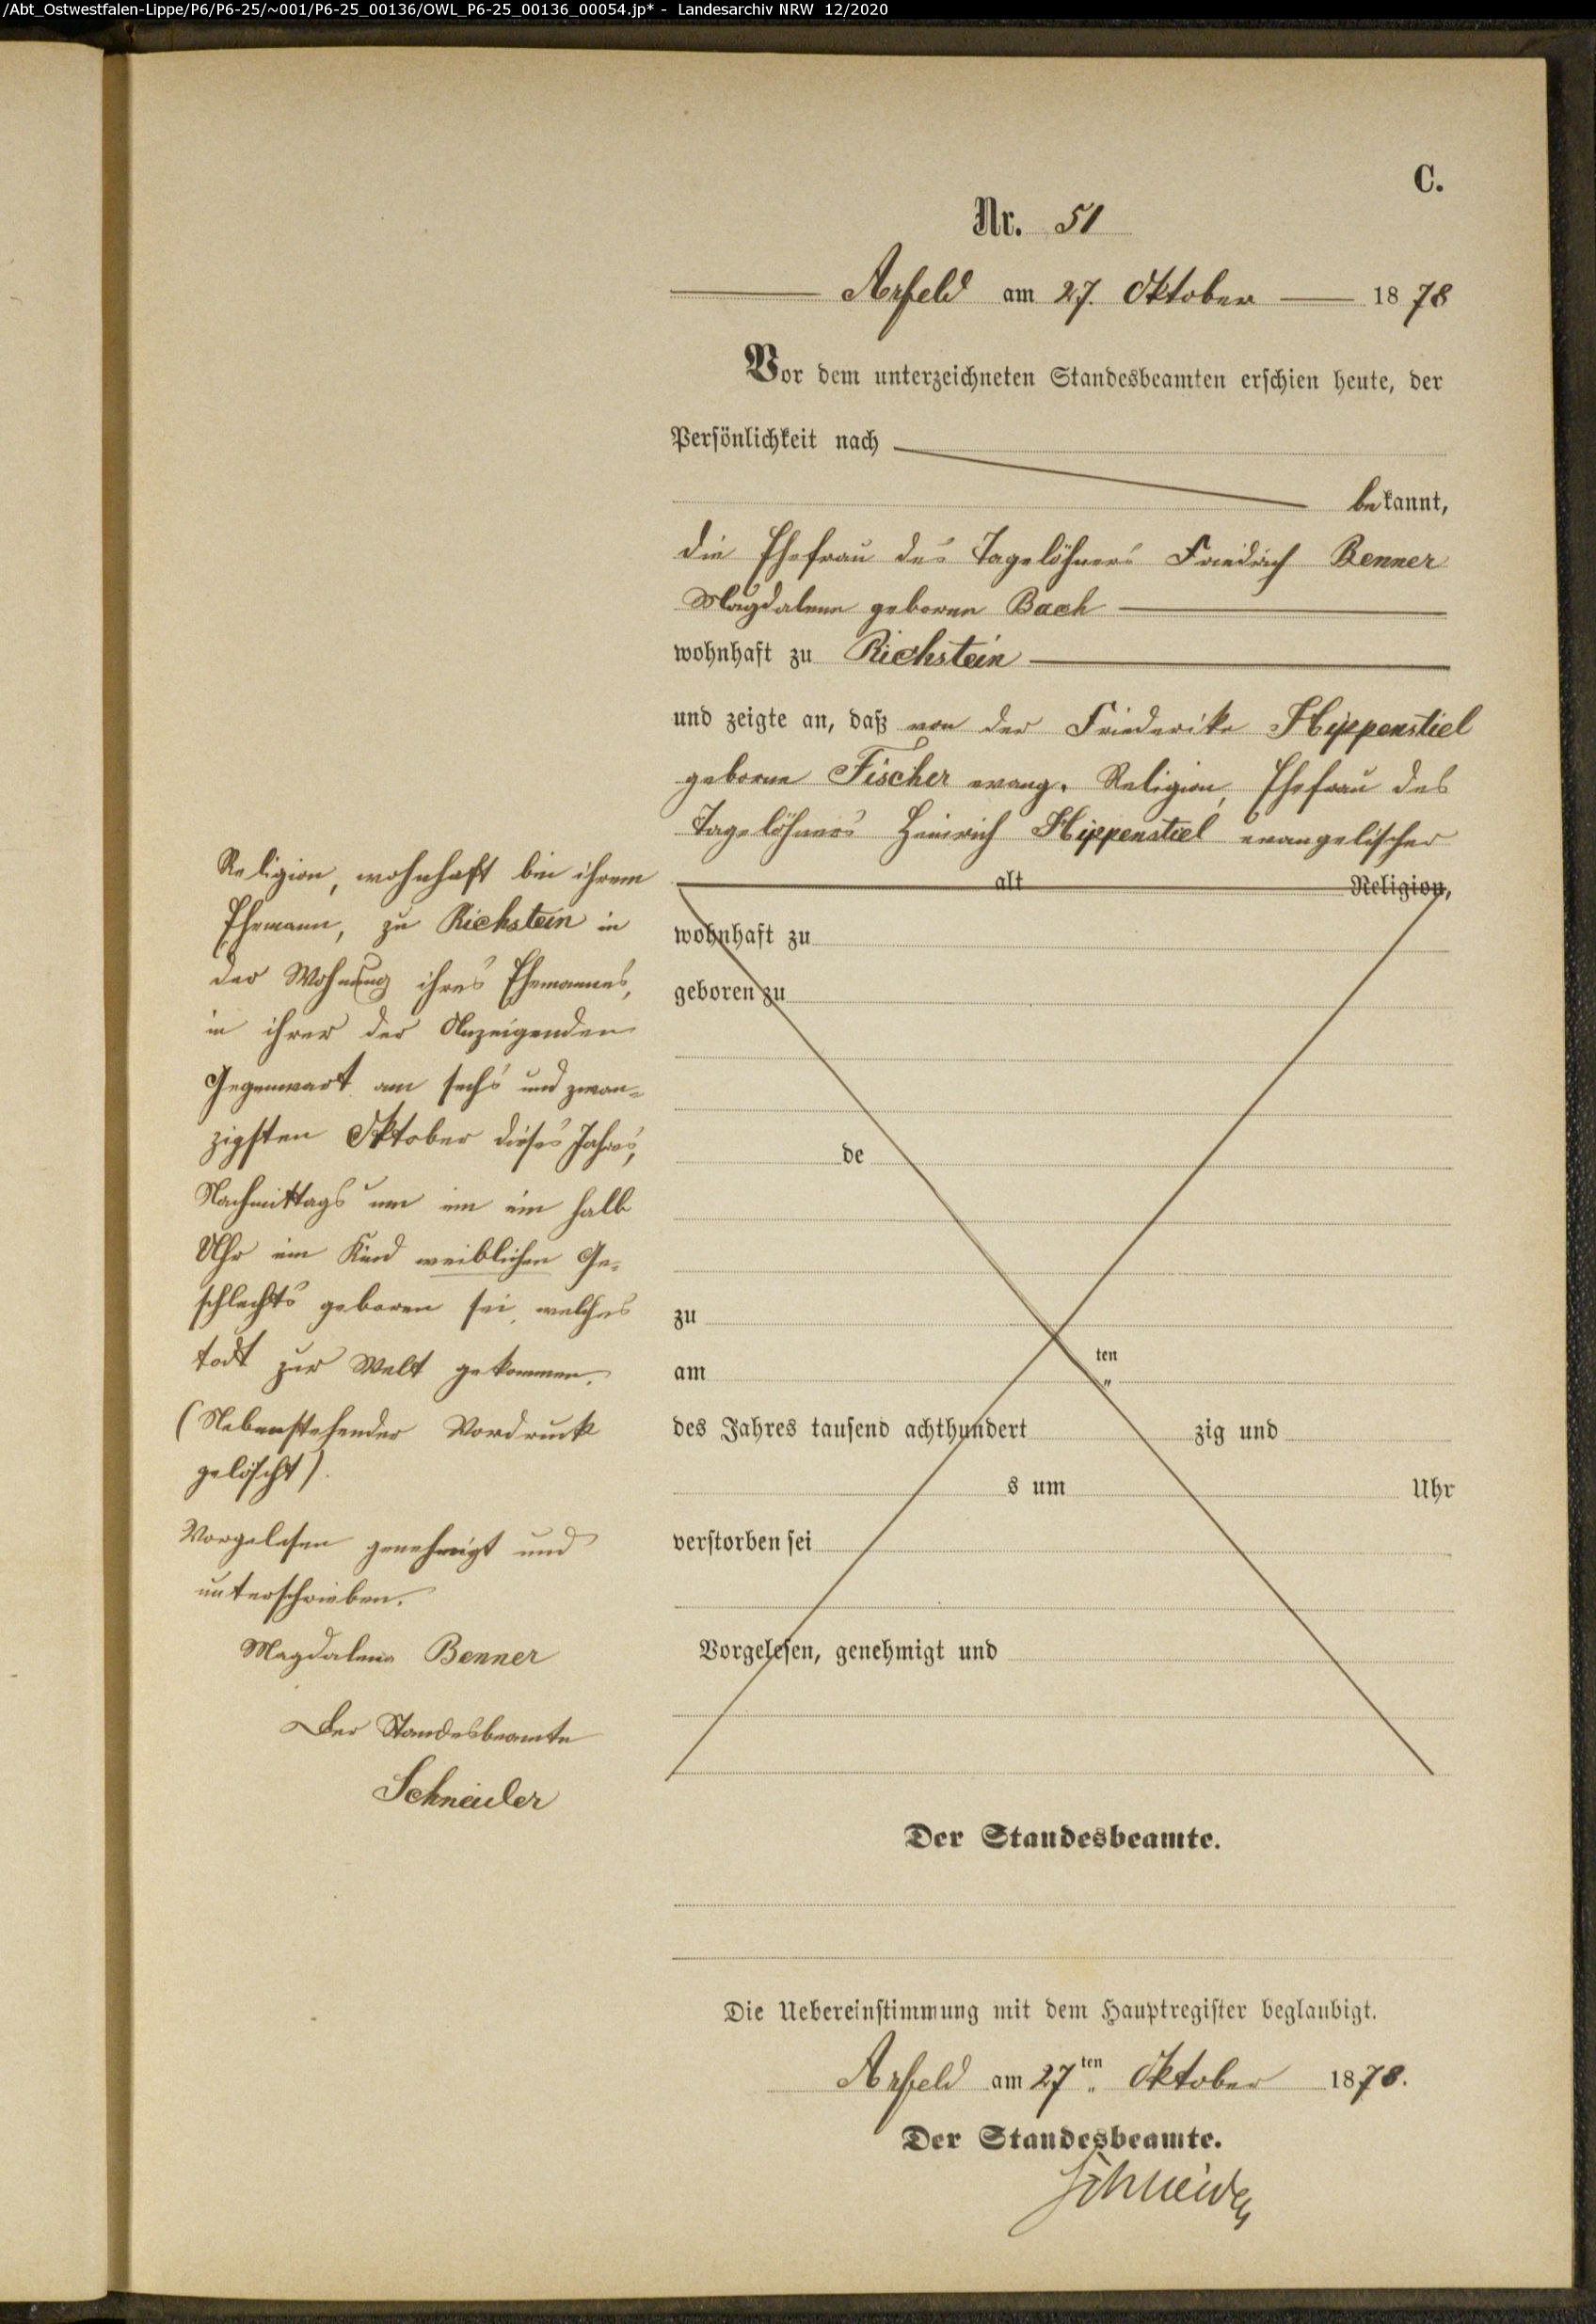 /Abt_Ostwestfalen-Lippe/P6/P6-25/~001/P6-25_00136/OWL_P6-25_00136_00054.jp* - Landesarchiv NRW 12/2020
C.
Nr. 51
Arfeld am 27. Oktober 1878
Vor dem unterzeichneten Standesbeamten erschien heute, der
Persönlichkeit nach
bekannt,
die Ehefrau des Tagelöhners Friedrich Benner
Magdalene geborne Bach
wohnhaft zu Richstein
und zeigte an, daß von der Friederike Hippenstiel
geborne Fischer evang. Religion, Ehefrau des
Tagelöhners Heinrich Hippenstiel evangelischer
alt Religion,
wohnhaft zu
geboren zu
de
zu
am ten
"
des Jahres tausend achthundert zig und
s um Uhr
verstorben sei
Vorgelesen, genehmigt und
Religion, wohnhaft bei ihrem
Ehemann, zu Richstein in
der Wohnung ihres Ehemannes,
in ihrer der Anzeigenden
Gegenwart am sechs und zwan-
zigsten Oktober dieses Jahres,
Nachmittags um ein ein halb
Uhr ein Kind weiblichen Ge-
schlechts geboren sei, welches
todt zur Welt gekommen.
(Nebenstehender Vordruck
gelöscht).
Vorgelesen genehmigt und
unterschrieben.
Magdalena Benner
Der Standesbeamte
Schneider
Der Standesbeamte.
Die Uebereinstimmung mit dem Hauptregister beglaubigt.
Arfeld am 27ten Oktober 1878.
Der Standesbeamte.
Schneider